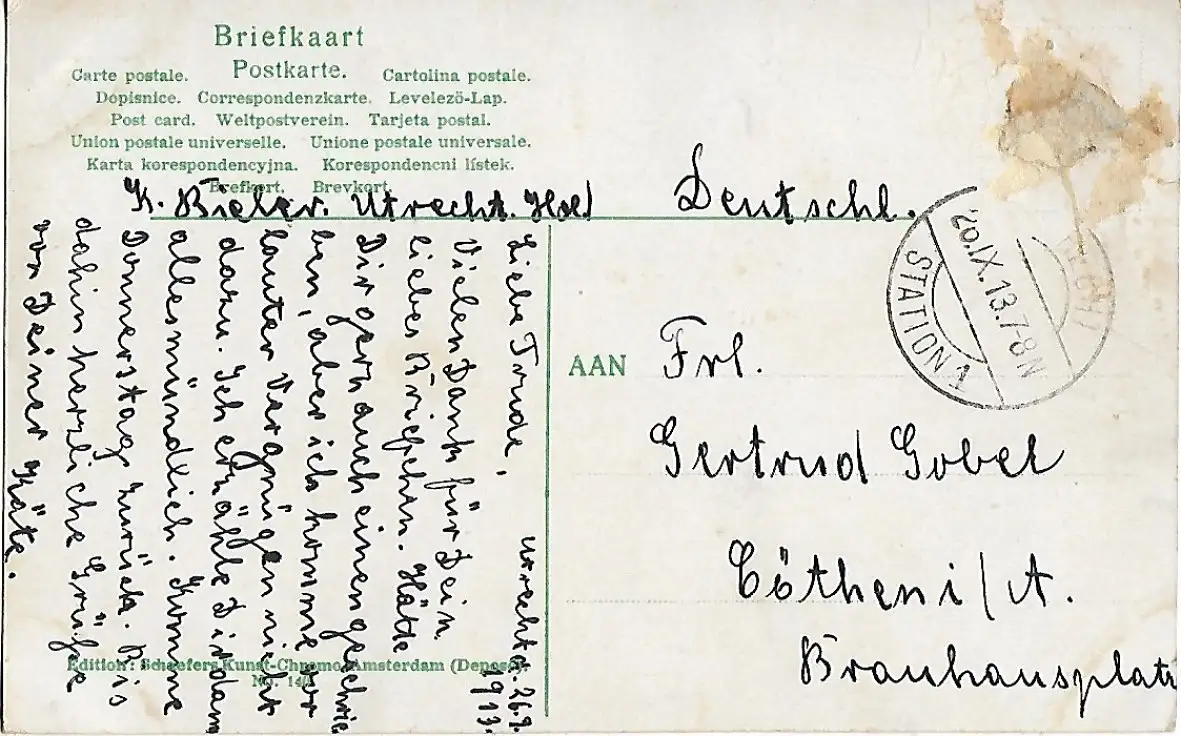 Briefkaart
Postkarte.
Carte postale. Cartolina postale.
Dopisnice. Correspondenzkarte. Levelező-Lap.
Post card. Weltpostverein. Tarjeta postal.
Union postale universelle. Unione postale universale.
Karta korespondencyjna. Korespondencni lístek.
Brefkort. Brevkort.
K. Bieler. Utrecht. Holl
Utrecht d. 26.9.
1913.
Liebe Trude,
Vielen Dank für Dein
liebes Briefchen. Hätte
Dir gern auch einen geschrie
ben, aber ich komme vor
lauter Vergnügen nicht
dazu. Ich erzähle Dir dann
alles mündlich. Komme
Donnerstag zurück. Bis
dahin herzliche Grüße
von Deiner Käte.
Edition: Schaefers Kunst-Chromo, Amsterdam (Deposé)
No.
Deutschl.
STATION 1
26.IX.13.7-8N
AAN Frl.
Gertrud Gobel
Cöthen i/A.
Brauhausplatz